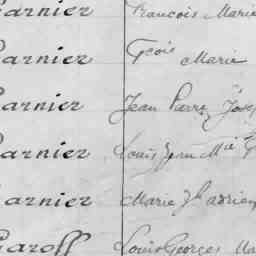 Garnier François Marie
Garnier Fçois Marie
Garnier Jean Pierre Josep
Garnier Louis Jean Mie
Garnier Marie
Garoff Louis Georges Ma